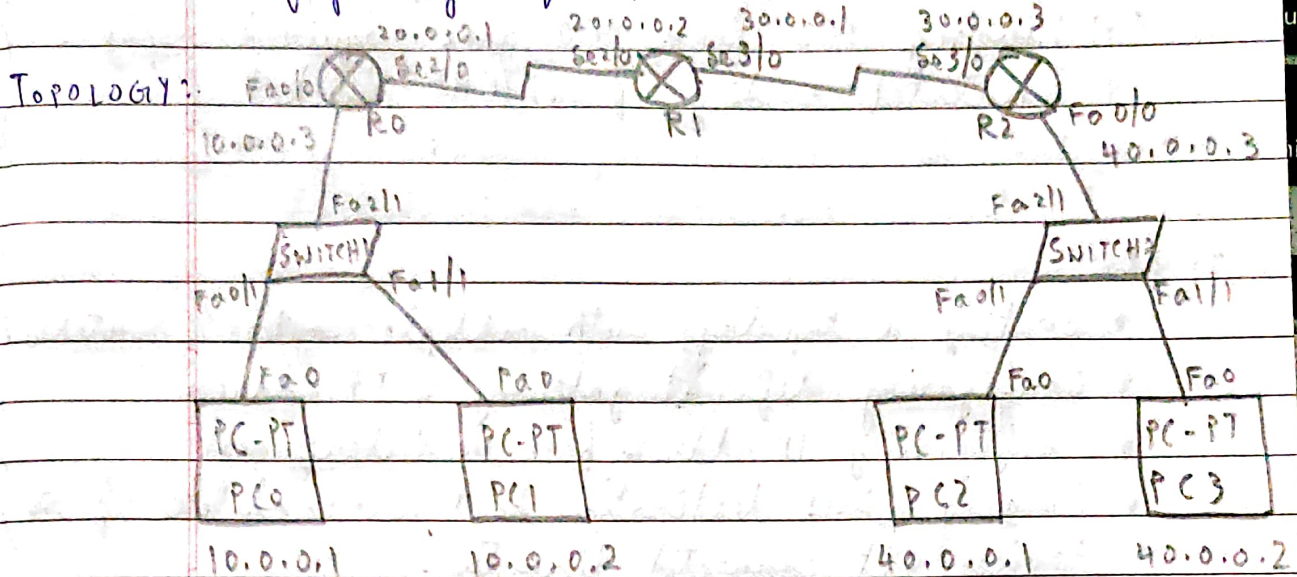 20.0.0.1 20.0.0.2 30.0.0.1 30.0.0.3
TOPOLOGY: Fa0/0 Se2/0 Se2/0 Se3/0 Se3/0
R0 R1 R2 Fa0/0
10.0.0.3 40.0.0.3
Fa2/1 Fa2/1
SWITCH1 SWITCH2
Fa0/1 Fa1/1 Fa0/1 Fa1/1
Fa0 Fa0 Fa0 Fa0
PC-PT PC-PT PC-PT PC-PT
PC0 PC1 PC2 PC3
10.0.0.1 10.0.0.2 40.0.0.1 40.0.0.2